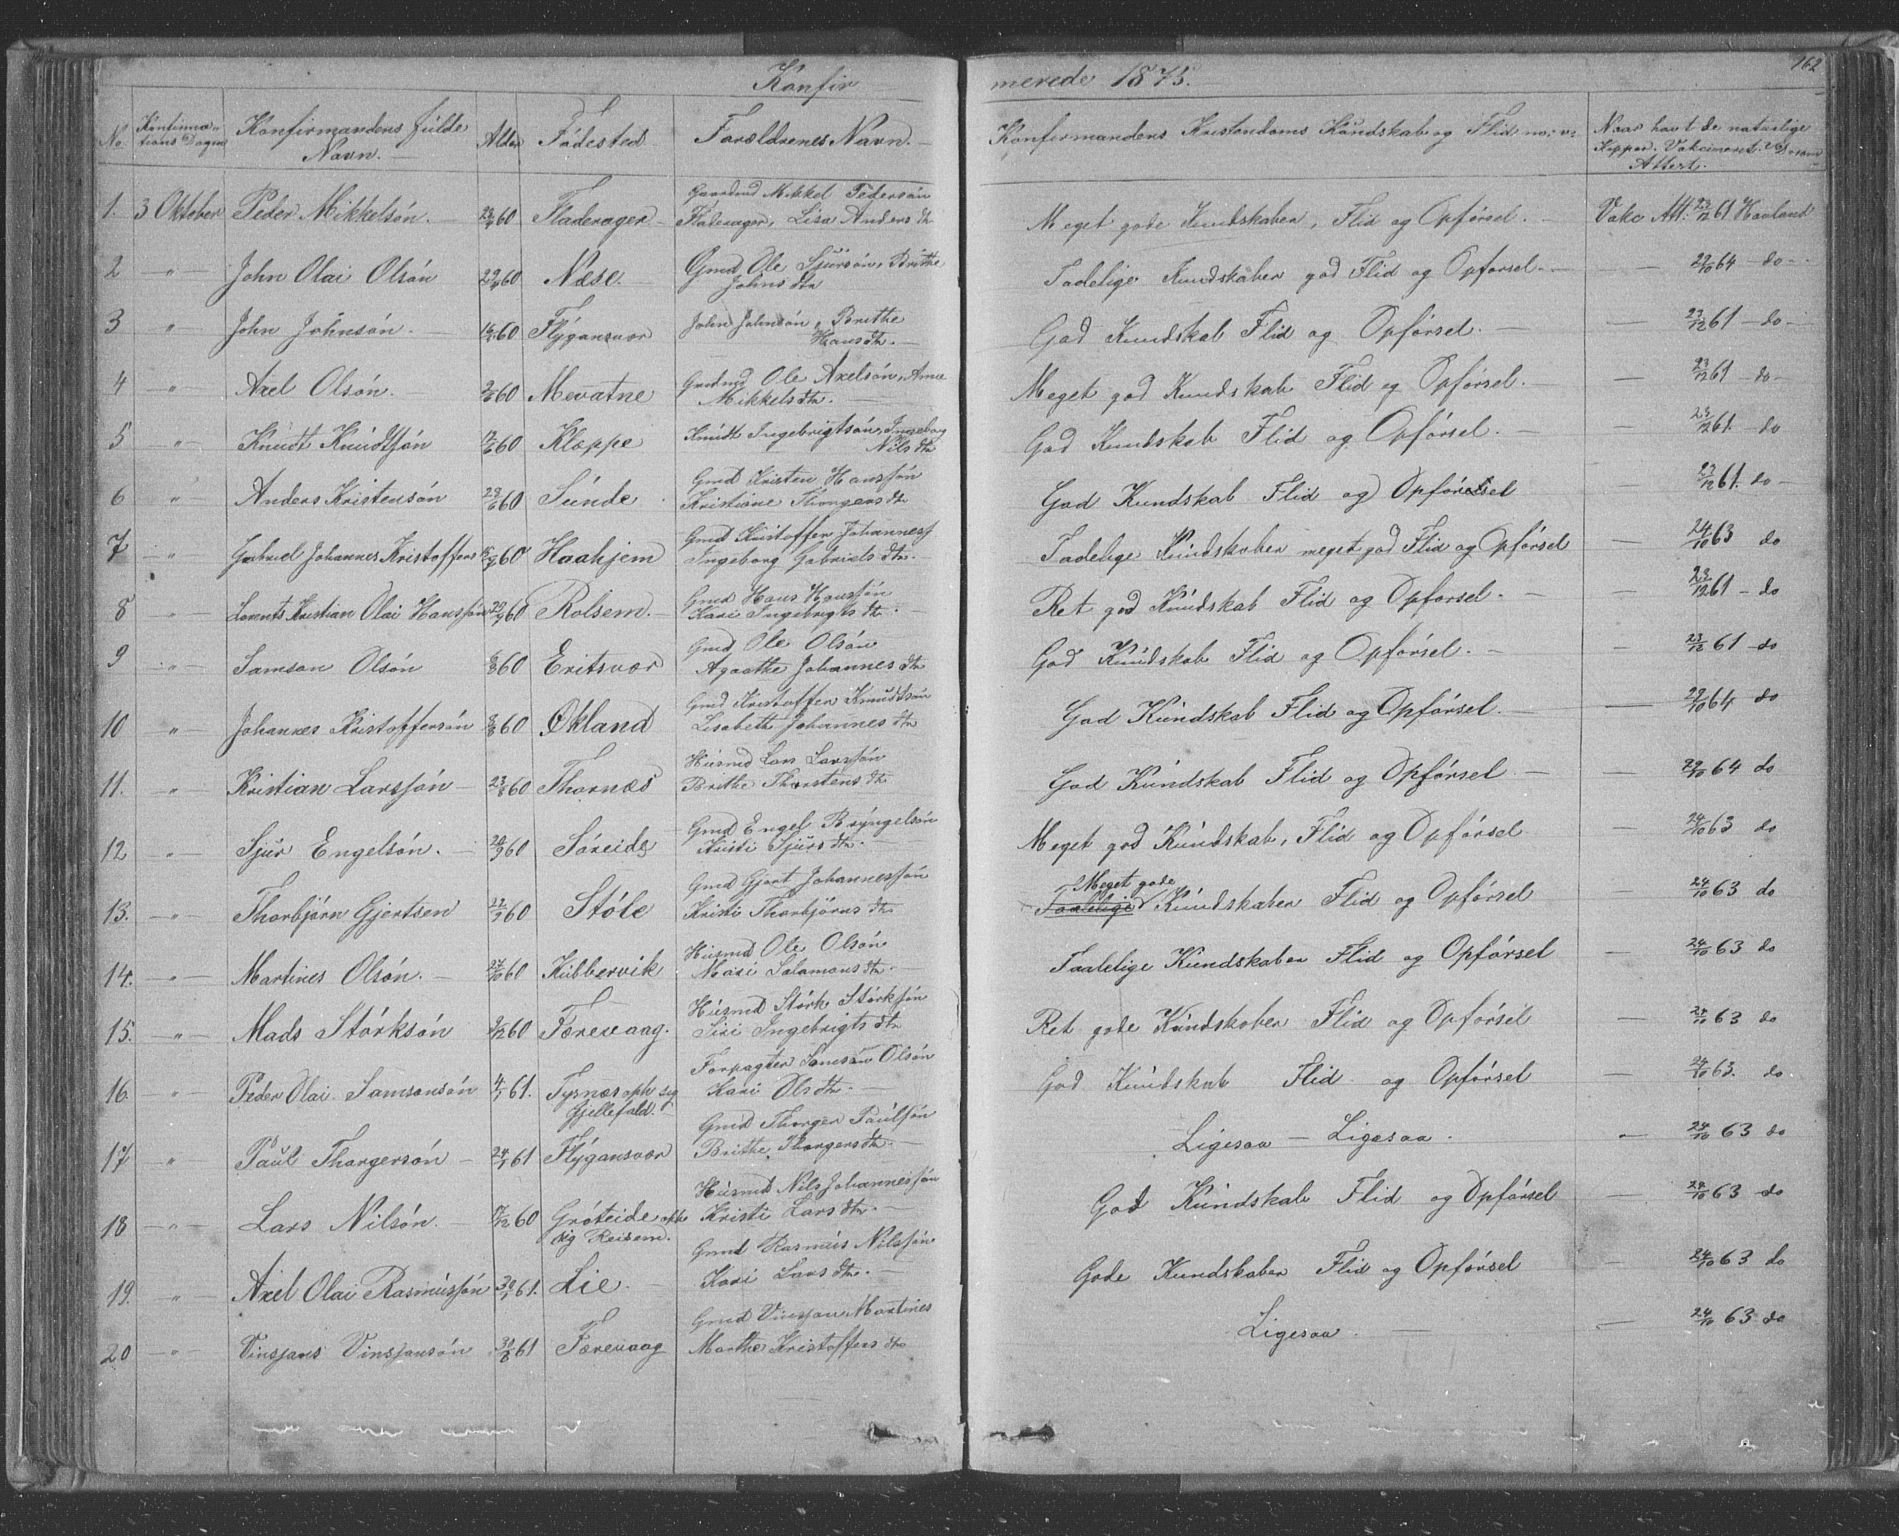 Konfirmerede 1875.
162
No. Konfirmations Dagen Konfirmandens fulde Navn. Alder Födested Forældrenes Navn. Konfirmandens Kristendoms Kundskab og Flid Naar havt de naturlige Kopper. Vakcineret Attest.
1. 3 Oktober Peder Mikkelsön. 60 Fladerager Gaardmd Mikkel Pedersön Fladerager, Lisa Anders dtr Meget gode Kundskaber, Flid og Opförsel. Vakc Att. 23/12 61 Havland
2 " John Olai Olsön 60 Næse. Gmd Ole Sjursön, Brithe Johns dtr Tadelige Kundskaber god Flid og Opförsel. 64 do
3 " John Johnsön. 60 Flygansvær John Johnsön, Brithe Hans dtr. God Kundskab Flid og Opförsel. 23/12 61 do
4 " Axel Olsön. 60 Mevatne Ole Axelsön, Anna Mikkels dtr. Meget god Kundskab Flid og Opförsel. 23/12 61 do
5 " Knudt Knudtsön 60 Kloppe Knudt Ingebrigtsön, Ingeborg Nils dtr God Kundskab Flid og Opförsel. 23/12 61 do
6 " Anders Kristensön 60 Sunde Gmd Kristen Hanssön Kristiane Thorgers dtr God Kundskab Flid og Opförsel 23/12 61. do
7 " Gabriel Johannes Kristoffers 60 Haahjem Gmd Kristoffer Johanness Ingeborg Gabriels dtr. Tadelige Kundskaber meget god Flid og Opförsel 24/10 63 do
8 " Lorents Kristian Olai Hanssön 60 Rolsem. Gmd Hans Hanssön Kari Ingebrigts dtr. Ret god Kundskab Flid og Opförsel. 23/12 61 do
9 " Samson Olsön 60 Eritsvær Gmd Ole Olsön Agaathe Johannes dtr God Kundskab Flid og Opförsel. 23/12 61 do
10 " Johannes Kristoffersön 60 Økland Gmd Kristoffer Knudtsön Lisabeth Johannes dtr God Kundskab Flid og Opförsel. 29/10 64 do
11. " Kristian Larssön 23/8 60 Thornæs Husmd Lars Larssön Brithe Thorstens dtr God Kundskab Flid og Opförsel 29/10 64 do
12 " Sjur Engelsön. 60 Söreide Gmd Engel Bryngelsön Kristi Sjurs dtr. Meget god Kundskab, Flid og Opförsel 24/10 63 do
13. " Thorbjörn Gjertsen 60 Stöle Gmd Gjert Johannessön Kristi Thorbjörns dtr Meget gode Taalelige Kundskaber Flid og Opförsel 24/10 63 do
14. " Martines Olsön. 24/10 60 Kubbervik Husmd Ole Olsön Mari Salamons dtr. Taalelige Kundskaber Flid og Opförsel 24/10 63 do
15. " Mads Störksön 60 Færevaag. Husmd Störk Störksön Siri Ingebrigts dtr Ret gode Kundskaber Flid og Opförsel 24/10 63 do
16. " Peder Olai Samsonsön 4/1 61. Tysnæs oph sig Gjellefald. Forpagter Samson Olsön Kari Ols dtr. God Kundskab Flid og Opförsel 24/10 63. do
17 " Paul Thorgersön 24/1 61 Flygansvær Gmd Thorger Paulsön Brithe Thorgers dtr. Ligesaa - Ligesaa. 24/10 63 do
18 " Lars Nilsön. 60 Gröteide oph sig Reisem. Husmd Nils Johannessön Kristi Lars dtr. God Kundskab Flid og Opförsel 24/10 63 do
19. " Axel Olai Rasmussön 61. Lie. Gmd Rasmus Nilssön Kari Lars dtr. Gode Kundskaber Flid og Opförsel 24/10 63 do
20 " Vinsjans Vinsjansön 61 Færevaag Gmd Vinsjans Martines Marthe Kristoffers dtr Ligesaa. 24/10 63 do